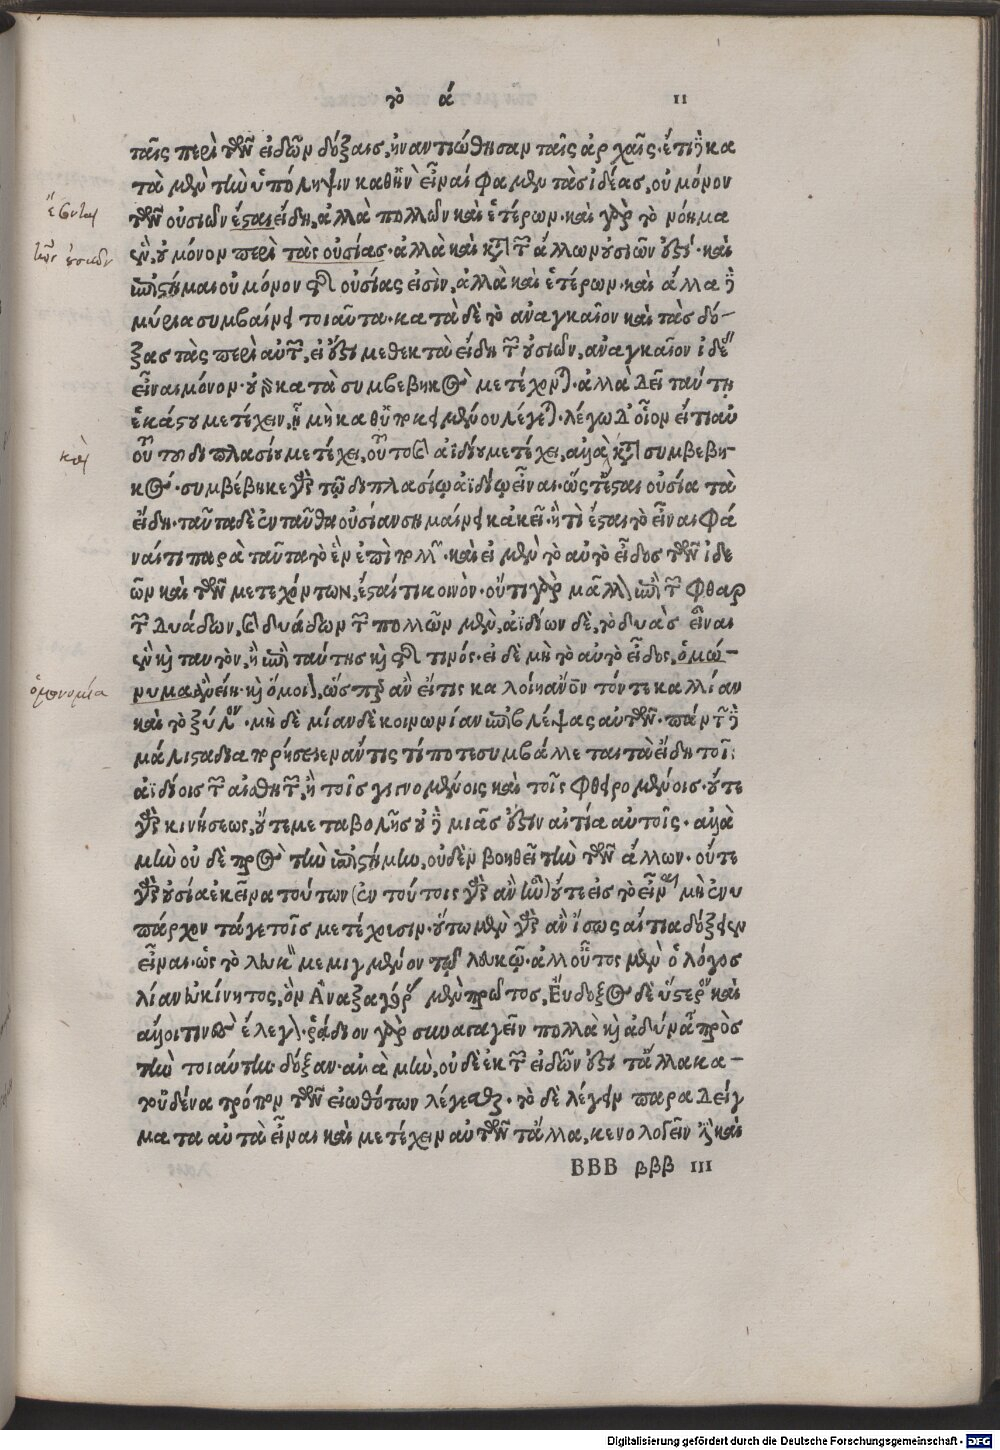 τὸ ά 11
ταῖς περὶ τῶν εἰδῶν δόξαις, ἠναντιώθησαν ταῖς ἀρχαῖς. ἔτι ἢ κα
τὰ μὲν τὴν ὑπόληψιν καθ' ἣν εἶναί φαμεν τὰς ἰδέας, οὐ μόνον
τῶν οὐσιῶν ἔσαι εἴδη, ἀλλὰ πολλῶν καὶ ἑτέρων. καὶ γὰρ τὸ νόημα
ἓν, οὐ μόνον περὶ τὰς οὐσίας. ἀλλὰ καὶ κατὰ τῶν ἄλλων οὐσιῶν ἐστί. καὶ
ἐπιστῆμαι οὐ μόνον τῆς οὐσίας εἰσὶν, ἀλλὰ καὶ ἑτέρων. καὶ ἄλλα δὲ
μύρια συμβαίνει τοιαῦτα. κατὰ δὲ τὸ ἀναγκαῖον καὶ τὰς δό-
ξας τὰς περὶ αὐτῶν, εἰ ἔστι μεθεκτὰ εἴδη τῶν οὐσιῶν, ἀναγκαῖον ἰδέας
εἶναι μόνον. οὐ γὰρ κατὰ συμβεβηκὸς μετέχονται. ἀλλὰ δεῖ ταύτῃ
ἑκάστου μετέχειν, ᾗ μὴ καθ' ὑποκειμένου λέγεται. λέγω δ' οἷον εἴ τι αὐ
οῦ τοῦ διπλασίου μετέχει, οὗτος καὶ ἀϊδίου μετέχει, ἀλλὰ κατὰ συμβεβη-
κός. συμβέβηκε γὰρ τῷ διπλασίῳ ἀϊδίῳ εἶναι. ὥστ' ἔσται οὐσία τὰ
εἴδη. ταῦτα δὲ ἐνταῦθα οὐσίαν σημαίνει κἀκεῖ. ἢ τί ἔσται τὸ εἶναι φά
ναί τι παρὰ ταῦτα τὸ ἓν ἐπὶ πολλῶν. καὶ εἰ μὲν τὸ αὐτὸ εἶδος τῶν ἰδε
ῶν καὶ τῶν μετεχόντων, ἔσται τι κοινόν. οὔτι γὰρ μᾶλλον ἐπὶ τῶν φθαρ
τῶν δυάδων, καὶ δυάδων τῶν πολλῶν μὲν, ἀϊδίων δὲ, τὸ δυὰς εἶναι
ἓν καὶ ταυτὸν, ἢ ἐπὶ ταύτης καὶ τῆς τινός. εἰ δὲ μὴ τὸ αὐτὸ εἶδος, ὁμώ-
νυμα ἂν εἴη. καὶ ὅμοιον, ὥσπερ ἂν εἴ τις καλοίη ἄνθρωπον τόν τε καλλίαν
καὶ τὸ ξύλον. μηδὲ μίαν δὲ κοινωνίαν ἐπιβλέψας αὐτῶν. πάντων δὲ
μάλιστα διαπορήσειεν ἄν τις τί ποτε συμβάλλεται τὰ εἴδη τοῖς
ἀϊδίοις τῶν αἰσθητῶν, ἢ τοῖς γιγνομένοις καὶ τοῖς φθειρομένοις. οὔτε
γὰρ κινήσεως, οὔτε μεταβολῆς οὐδεμιᾶς ἐστὶν αἰτία αὐτοῖς. ἀλλὰ
μὴν οὐδὲ πρὸς τὴν ἐπιστήμην, οὐδὲν βοηθεῖ τὴν τῶν ἄλλων. οὔτε
γὰρ οὐσία ἐκεῖνα τούτων (ἐν τούτοις γὰρ ἂν ἦν) οὔτε εἰς τὸ εἶναι μὴ ἐνυ
πάρχοντά γε τοῖς μετέχουσιν. οὕτω μὲν γὰρ ἂν ἴσως αἴτια δόξειεν
εἶναι. ὡς τὸ λευκὸν μεμιγμένον τῷ λευκῷ. ἀλλ' οὗτος μὲν ὁ λόγος
λίαν εὐκίνητος, ὃν Ἀναξαγόρας μὲν πρῶτος, Εὔδοξος δὲ ὕστερον καὶ
ἄλλοι τινὲς ἔλεγον. ῥᾴδιον γὰρ συναγαγεῖν πολλὰ καὶ ἀδύνατα πρὸς
τὴν τοιαύτην δόξαν. ἀλλὰ μὴν, οὐδὲ ἐκ τῶν εἰδῶν ἐστὶ τἄλλα κα-
τ' οὐδένα τρόπον τῶν εἰωθότων λέγεσθαι. τὸ δὲ λέγειν παραδείγ
ματα αὐτὰ εἶναι καὶ μετέχειν αὐτῶν τἄλλα, κενολογεῖν ἐστὶ καὶ
BBB βββ III
ἔσονται
καὶ
ὁμωνυμία
Digitalisierung gefördert durch die Deutsche Forschungsgemeinschaft - DFG